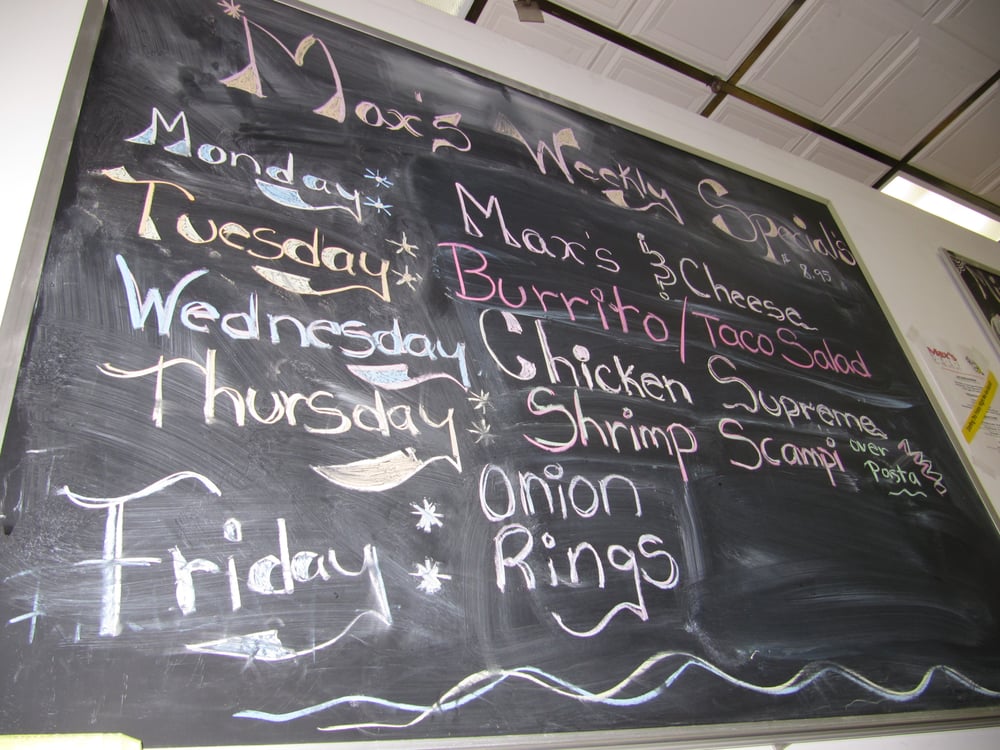 Max's Weekly Special's
Monday Max's & Cheese $8.95
Tuesday Burrito/Taco Salad
Wednesday Chicken Supreme
Thursday Shrimp Scampi over Pasta
Friday Onion
Rings
Max's